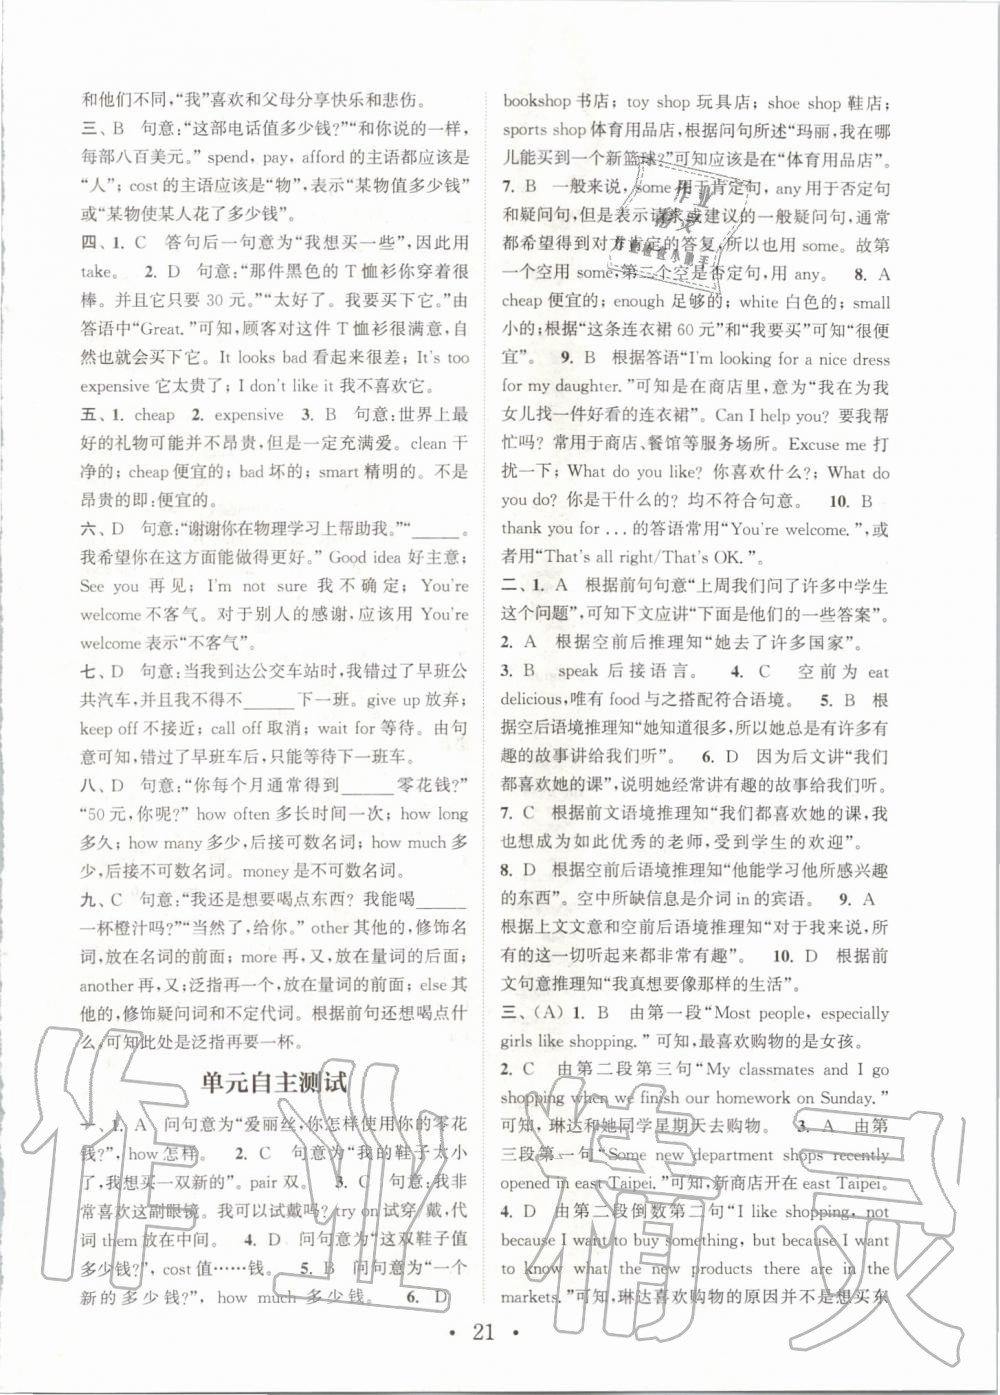 和他们不同，“我”喜欢和父母分享快乐和悲伤。
三、B 句意：“这部电话值多少钱？”“和你说的一样，
每部八百美元。” spend, pay, afford 的主语都应该是
“人”；cost 的主语应该是“物”，表示“某物值多少钱”
或“某物使某人花了多少钱”。
四、1. C 答句后一句意为“我想买一些”，因此用
take。 2. D 句意：“那件黑色的 T 恤衫你穿着很
棒。并且它只要 30 元。”“太好了。我要买下它。”由
答语中“Great.”可知，顾客对这件 T 恤衫很满意，自
然也就会买下它。It looks bad 看起来很差；It's too
expensive 它太贵了；I don't like it 我不喜欢它。
五、1. cheap 2. expensive 3. B 句意：世界上最
好的礼物可能并不昂贵，但是一定充满爱。clean 干
净的；cheap 便宜的；bad 坏的；smart 精明的。不是
昂贵的即：便宜的。
六、D 句意：“谢谢你在物理学习上帮助我。”“______。
我希望你在这方面能做得更好。” Good idea 好主意；
See you 再见；I'm not sure 我不确定；You're
welcome 不客气。对于别人的感谢，应该用 You're
welcome 表示“不客气”。
七、D 句意：当我到达公交车站时，我错过了早班公
共汽车，并且我不得不______下一班。give up 放弃；
keep off 不接近；call off 取消；wait for 等待。由句
意可知，错过了早班车后，只能等待下一班车。
八、D 句意：“你每个月通常得到______零花钱？”
“50 元，你呢？” how often 多长时间一次；how long
多久；how many 多少，后接可数名词；how much 多
少，后接不可数名词。money 是不可数名词。
九、C 句意：“我还是想要喝点东西？我能喝______
一杯橙汁吗？”“当然了，给你。” other 其他，修饰名
词，放在名词的前面；more 再，放在量词的后面；
another 再，又；泛指再一个，放在量词的前面；else 其
他的，修饰疑问词和不定代词。根据前句还想喝点什
么，可知此处是泛指再要一杯。
单元自主测试
一、1. A 问句意为“爱丽丝，你怎样使用你的零花
钱？”，how 怎样。 2. C 句意为“我的鞋子太小
了，我想买一双新的”。pair 双。 3. C 句意：我非
常喜欢这副眼镜。我可以试戴吗？try on 试穿/戴，代
词 them 放在中间。 4. D 问句意为“这双鞋子值
多少钱？”，cost 值……钱。 5. B 问句意为“一个
新的多少钱？”，how much 多少钱。 6. D
bookshop 书店；toy shop 玩具店；shoe shop 鞋店；
sports shop 体育用品店，根据问句所述“玛丽，我在哪
儿能买到一个新篮球？”可知应该是在“体育用品店”。
7. B 一般来说，some 用于肯定句，any 用于否定句
和疑问句，但是表示请求或建议的一般疑问句，通常
都希望得到对方肯定的答复，所以也用 some。故第
一个空用 some；第二个空是否定句，用 any。 8. A
cheap 便宜的；enough 足够的；white 白色的；small
小的；根据“这条连衣裙 60 元”和“我要买”可知“很便
宜”。 9. B 根据答语“I'm looking for a nice dress
for my daughter.”可知是在商店里，意为“我在为我
女儿找一件好看的连衣裙”。Can I help you? 要我帮
忙吗？常用于商店、餐馆等服务场所。Excuse me 打
扰一下；What do you like? 你喜欢什么？；What do
you do? 你是干什么的？均不符合句意。 10. B
thank you for ... 的答语常用“You're welcome.”，或
者用“That's all right/That's OK.”。
二、1. A 根据前句句意“上周我们问了许多中学生
这个问题”，可知下文应讲“下面是他们的一些答案”。
2. A 根据空前后推理知“她去了许多国家”。
3. B speak 后接语言。 4. C 空前为 eat
delicious，唯有 food 与之搭配符合语境。 5. B 根
据空后语境推理知“她知道很多，所以她总是有许多有
趣的故事讲给我们听”。 6. D 因为后文讲“我们
都喜欢她的课”，说明她经常讲有趣的故事给我们听。
7. C 根据前文语境推理知“我们都喜欢她的课，我
也想成为如此优秀的老师，受到学生的欢迎”。
8. D 根据空前后语境推理知“他能学习他所感兴趣
的东西”。空中所缺信息是介词 in 的宾语。 9. A
根据上文文意和空前后语境推理知“对我来说，所
有的这一切听起来都非常有趣”。 10. D 根据前
文句意推理知“我真想要像那样的生活”。
三、（A）1. B 由第一段“Most people, especially
girls like shopping.”可知，最喜欢购物的是女孩。
2. C 由第二段第三句“My classmates and I go
shopping when we finish our homework on Sunday.”
可知，琳达和她同学星期天去购物。 3. A 由第
三段第一句“Some new department shops recently
opened in east Taipei.”可知，新商店开在 east Taipei。
4. D 由第二段倒数第二句“I like shopping, not
because I want to buy something, but because I want
to know what the new products there are in the
markets.”可知，琳达喜欢购物的原因并不是想买东
• 21 •
作业精灵
作业
精灵
作业检查小助手